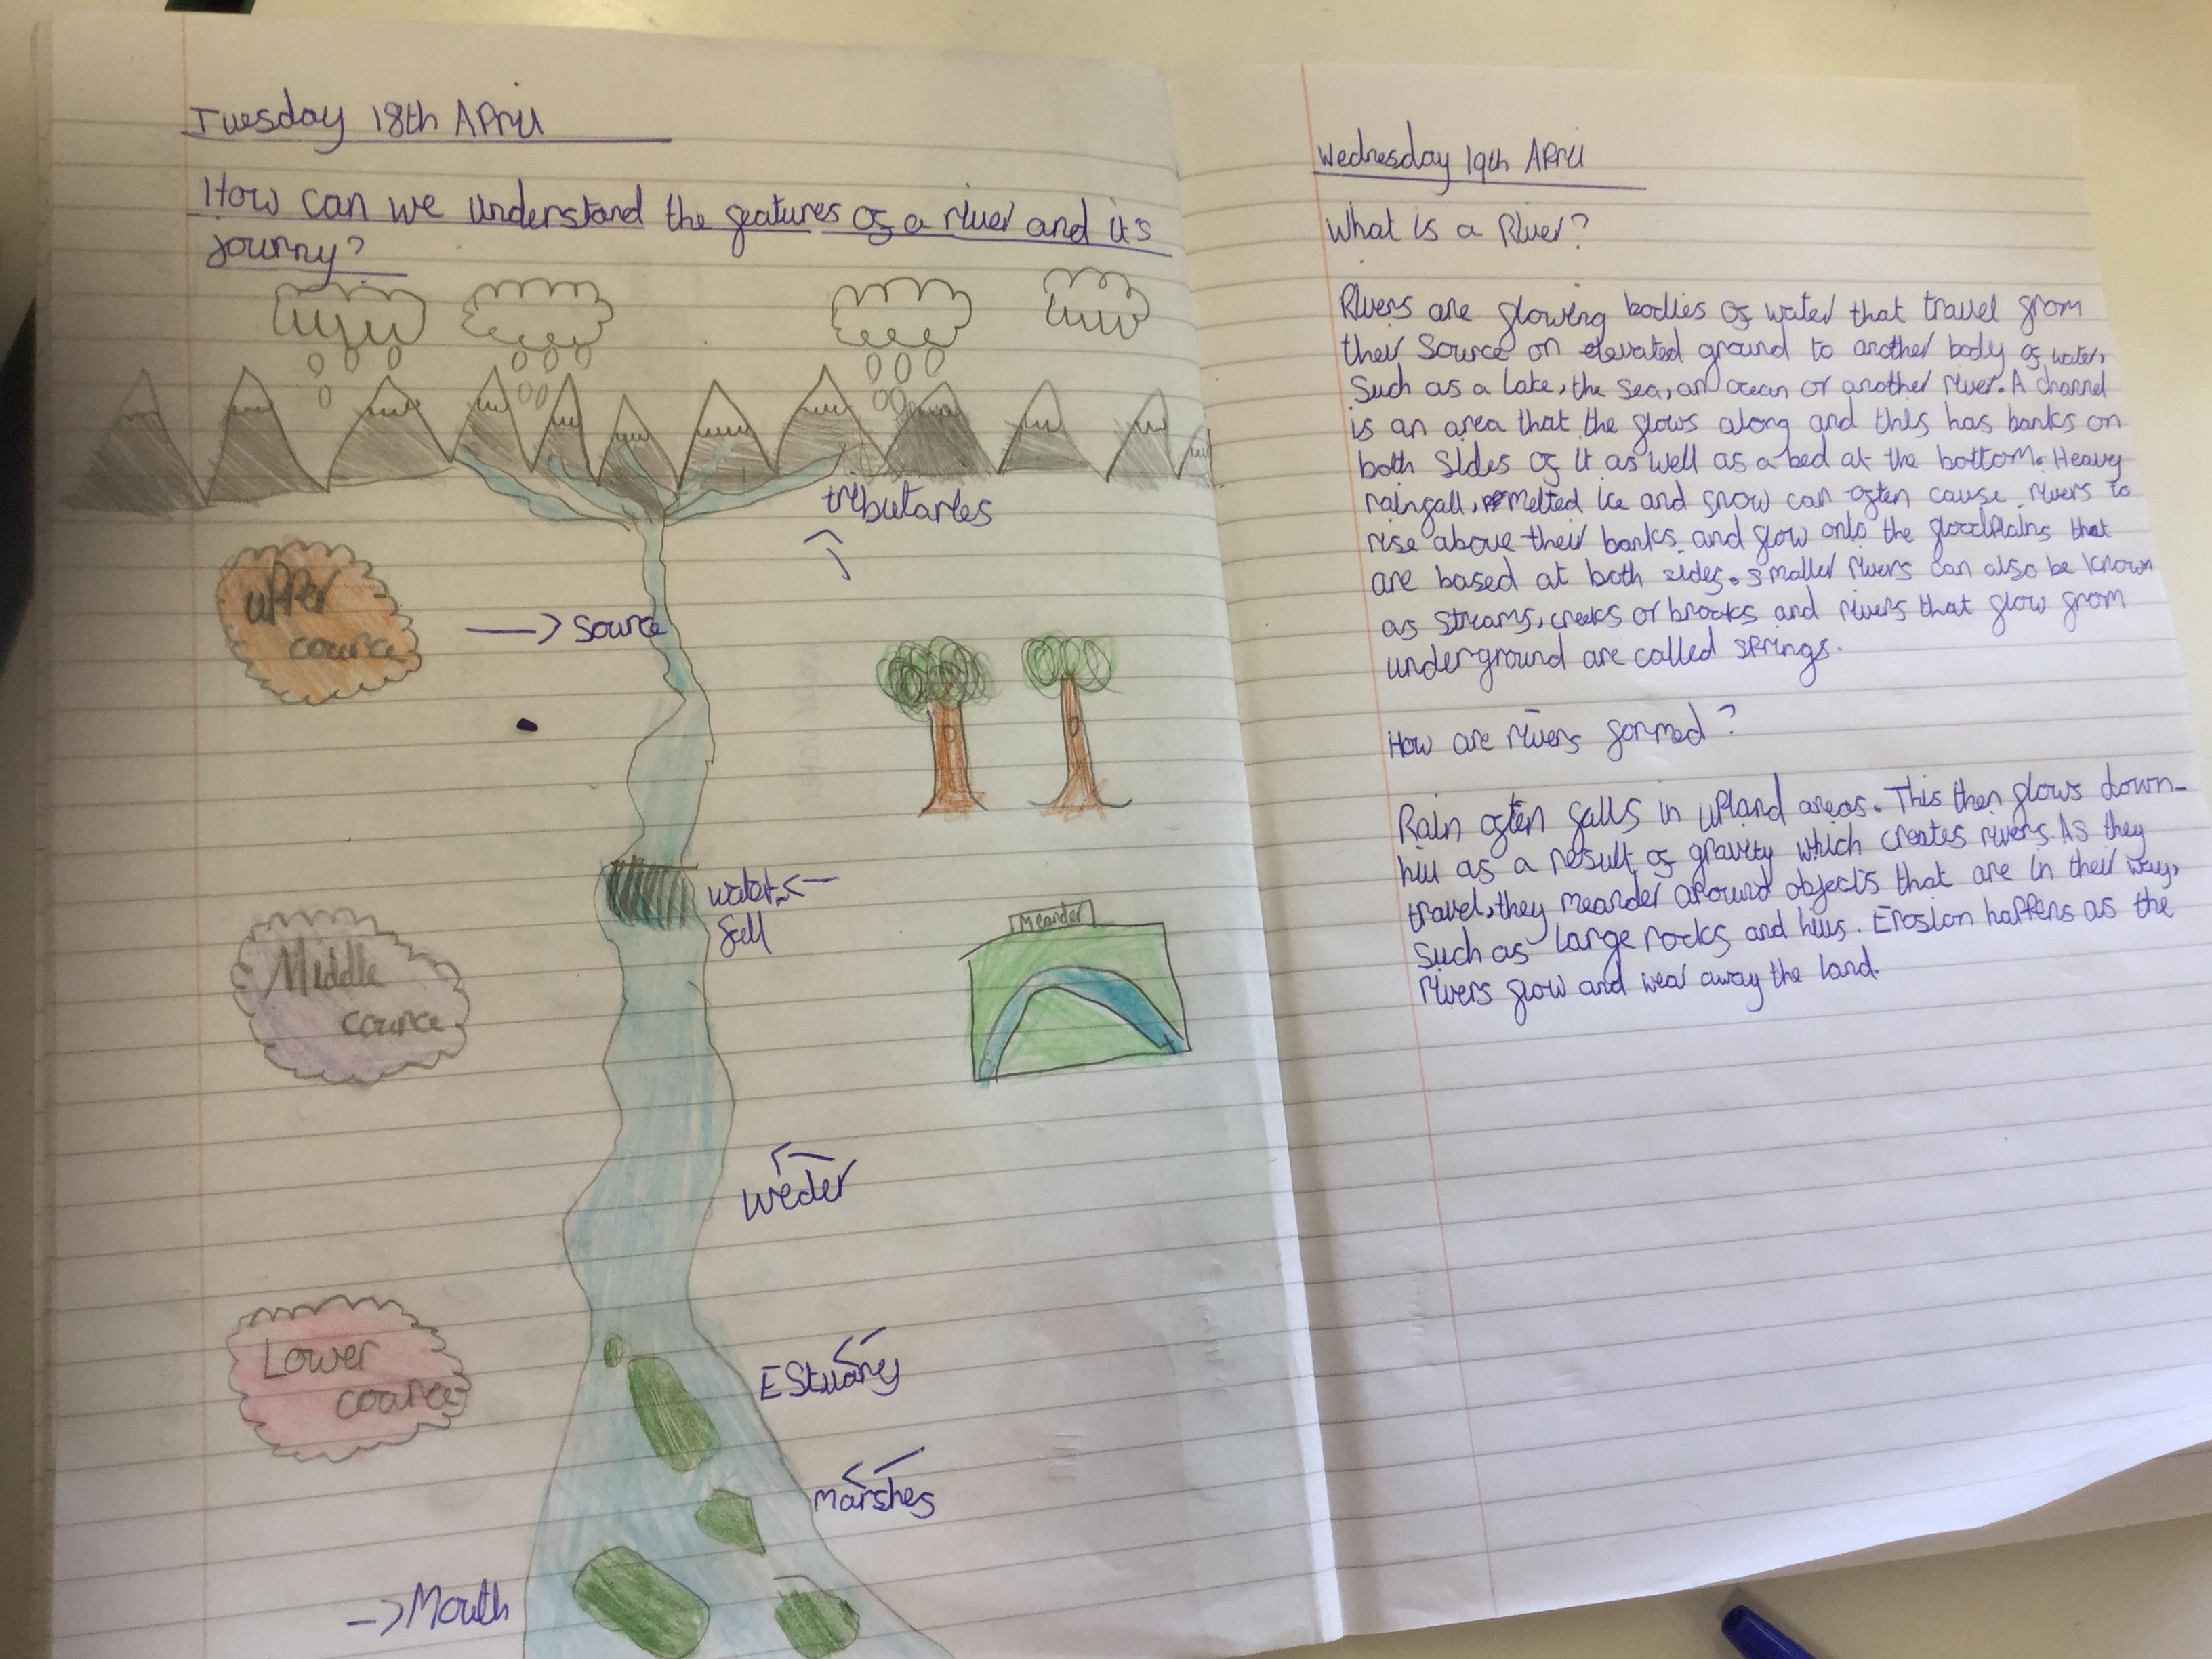 Tuesday 18th April
How can we understand the features of a river and it's
journy?
tributaries
upper
cource
source
water
fall
Meander
Middle
cource
weder
Lower
cource
Estuarey
marshes
Mouth
Wednesday 19th April
What is a River?
Rivers are flowing bodies of water that travel from
their source on elevated ground to another body of water,
Such as a lake, the sea, an ocean or another river. A channel
is an area that the flows along and this has banks on
both sides of it as well as a bed at the bottom. Heavy
rainfall, melted ice and snow can often cause rivers to
rise above their banks and flow onto the floodplains that
are based at both sides. smaller rivers can also be known
as streams, creeks or brooks and rivers that flow from
underground are called springs.
How are rivers formed?
Rain often falls in upland areas. This then flows down-
hill as a result of gravity which creates rivers. As they
travel, they meander around objects that are in their way,
Such as large rocks and hills. Erosion happens as the
rivers flow and wear away the land.